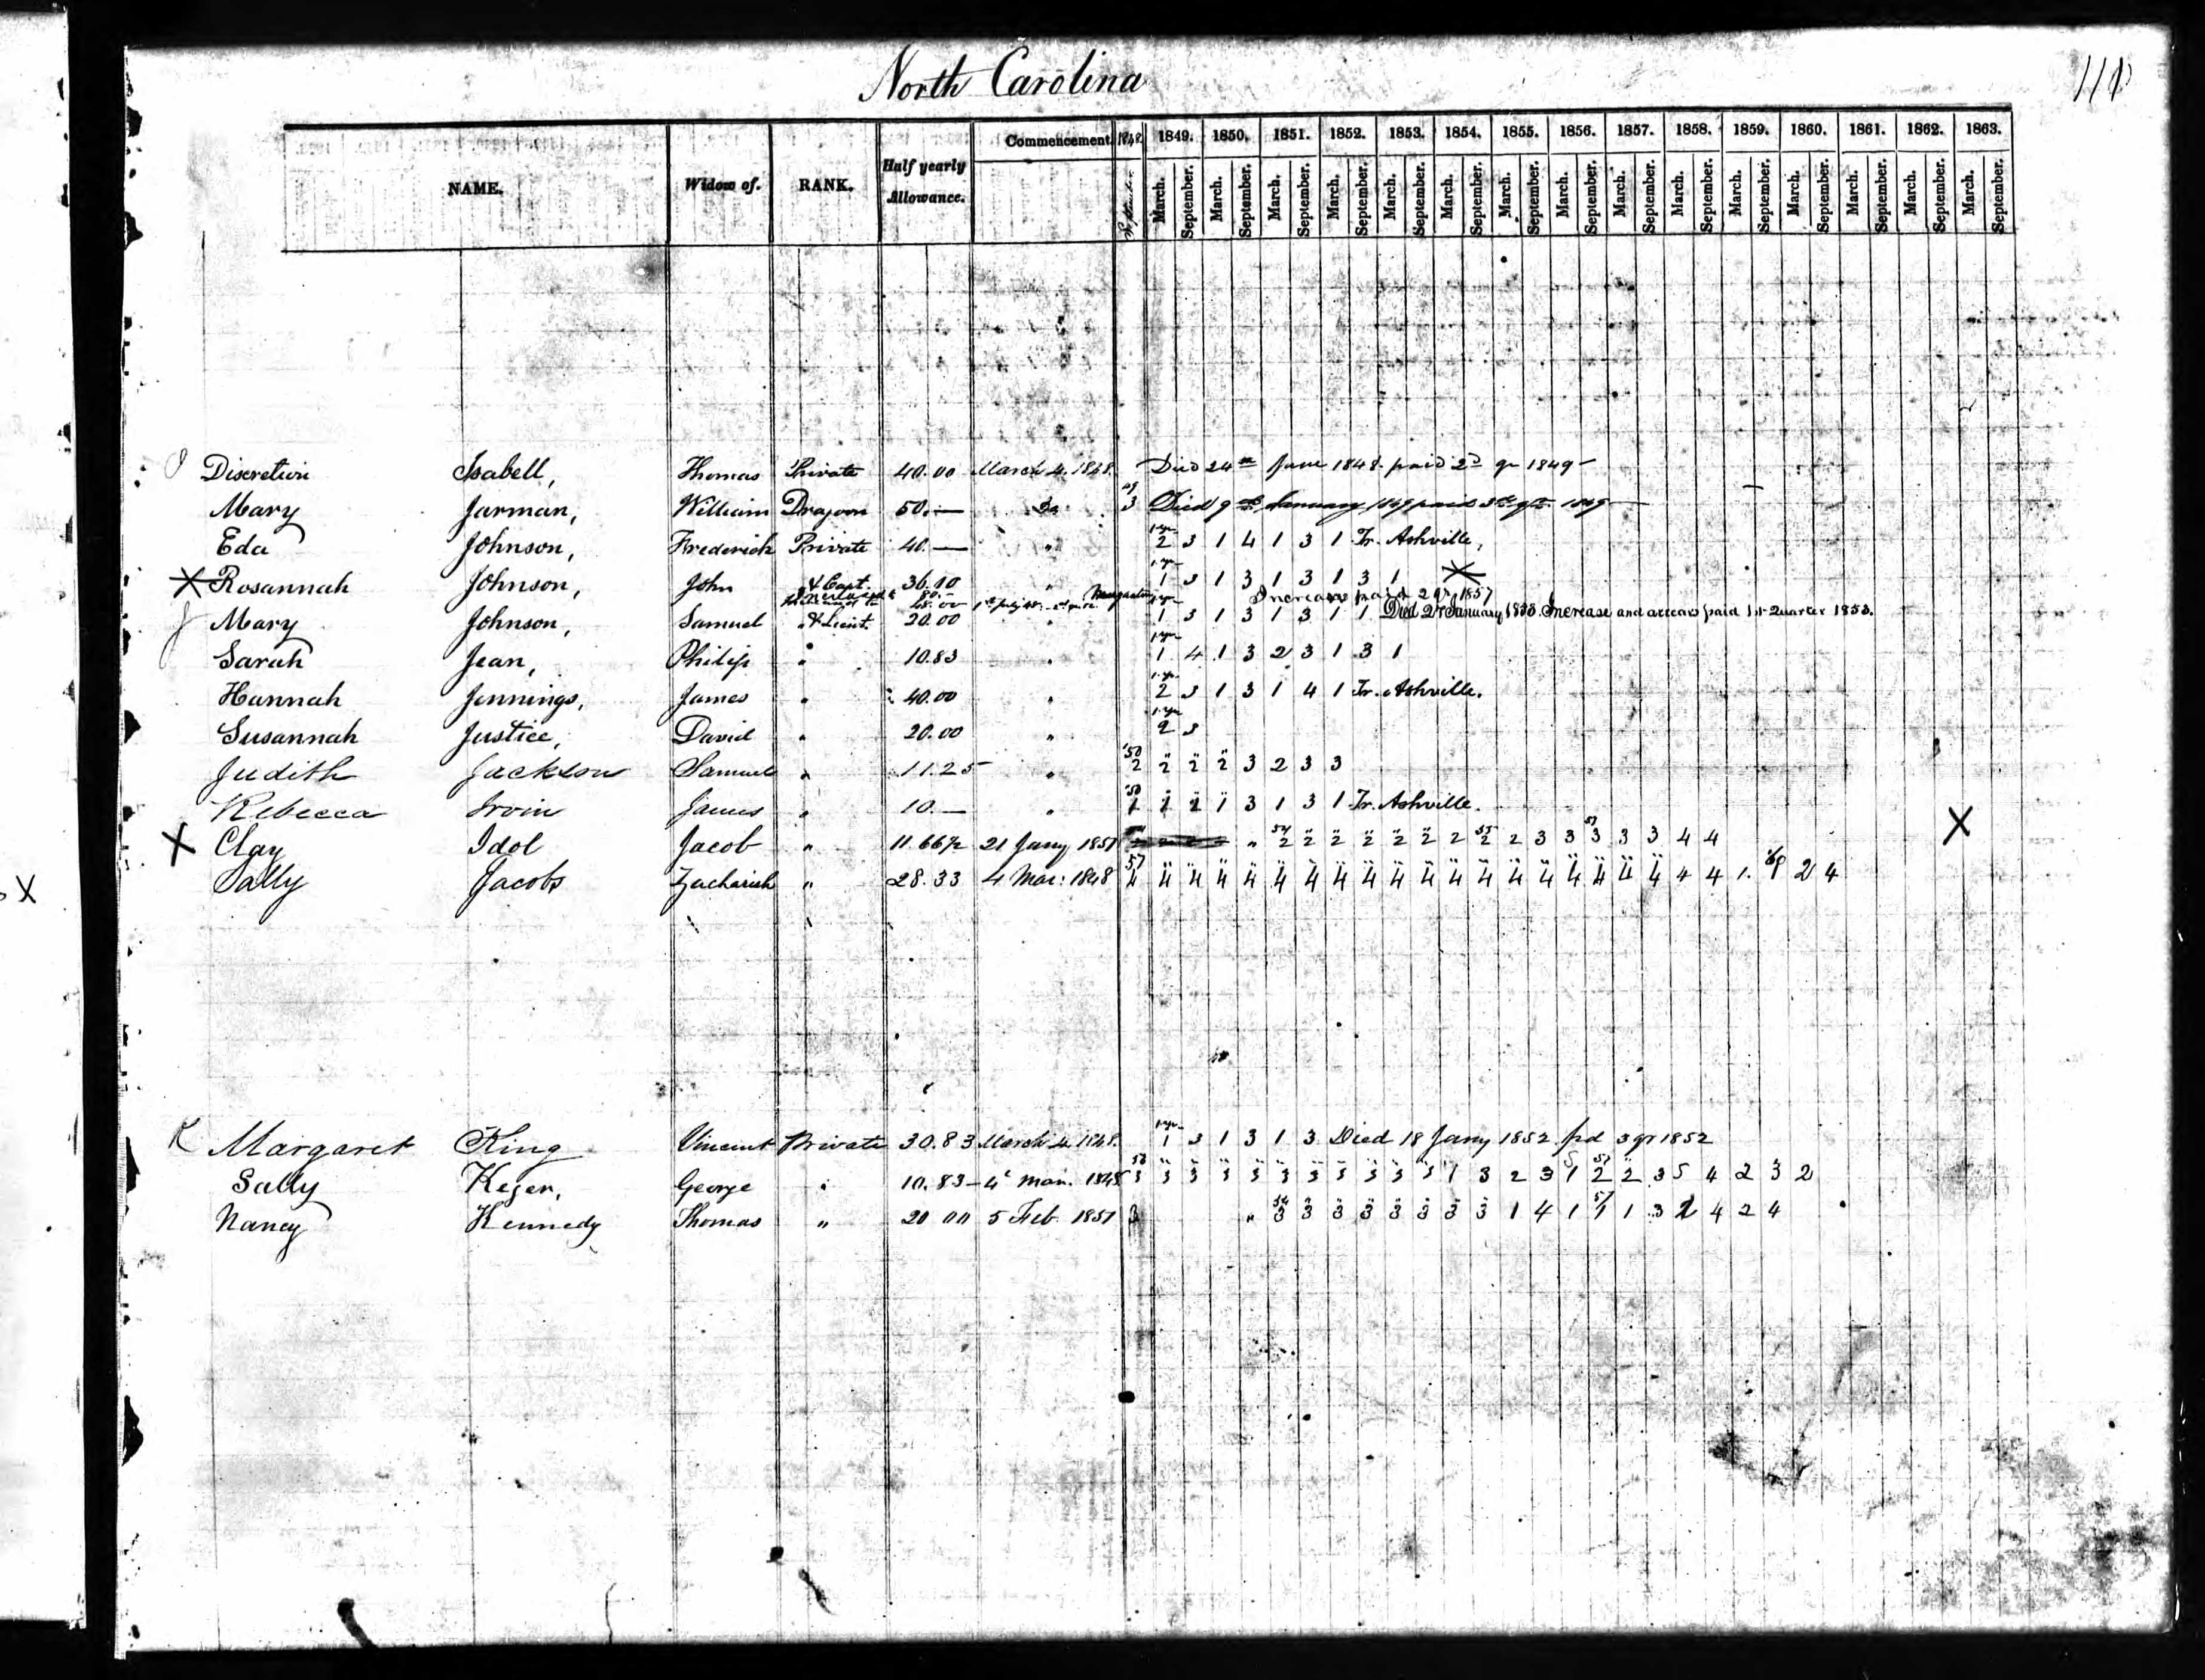 North Carolina
NAME. Widow of. RANK. Half yearly Allowance. Commencement 1848. 1849. 1850. 1851. 1852. 1853. 1854. 1855. 1856. 1857. 1858. 1859. 1860. 1861. 1862. 1863.
September March. September. March. September. March. September. March. September. March. September. March. September. March. September. March. September. March. September. March. September. March. September. March. September. March. September. March. September. March. September.
Discretion Isabell, Thomas Private 40.00 March 4. 1848. Died 24th June 1848. paid 2d qr 1849
Mary Jarman, William Dragoon 50.— Do. 3 Died 9th January 1849 paid 3d qr 1849
Eda Johnson, Frederick Private 40.— " 2 3 1 4 1 3 1 Tr. Ashville,
X Rosannah Johnson, John & Capt. 36.10 " 1 3 1 3 1 3 1 3 1 X
Increase paid 2 qr 1857
J Mary Johnson, Samuel " & Lieut. 20.00 " 1 3 1 3 1 3 1 1 Died 2d January 1853. Increase and arrears paid 1st Quarter 1853.
Sarah Jean, Philip " 10.83 " 1 4 1 3 2 3 1 3 1
Hannah Jennings, James " 40.00 " 2 3 1 3 1 4 1 Tr. Ashville.
Susannah Justice, David " 20.00 " 2 3
Judith Jackson Samuel " 11.25 " '50 2 2 2 2 3 2 3 3
Rebecca Irvin James " 10.— " '50 1 1 1 1 3 1 3 1 Tr. Ashville.
X Clay Idol Jacob " 11.66½ 21 Jany 1851 " 54 2 2 2 2 2 2 2 55 2 2 3 3 57 3 3 3 4 4 X
Sally Jacobs Zachariah " 28.33 4 Mar: 1848 57 4 4 4 4 4 4 4 4 4 4 4 4 4 4 4 4 4 4 4 4 4 1. 2 4
X
K Margaret King Vincent Private 30.83 March 4. 1848. 1 3 1 3 1 3 Died 18 Jany 1852 pd 3 qr 1852
Sally Keger, George " 10.83 4 Mar. 1848 53 3 3 3 3 3 3 3 3 3 3 3 1 3 2 3 1 57 2 2 3 5 4 2 3 2
Nancy Kennedy Thomas " 20 00 5 Feb 1851 " 54 3 3 3 3 3 3 3 3 1 4 1 57 1 1 3 2 4 2 4